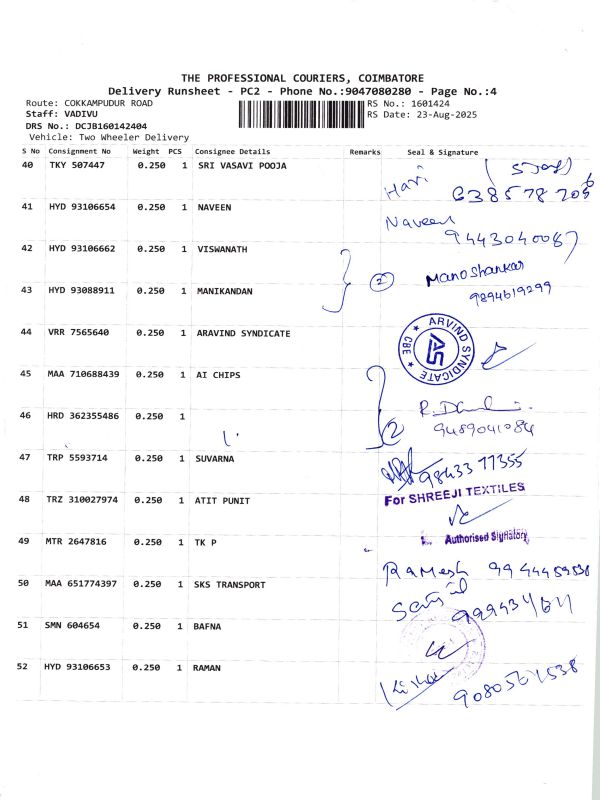 THE PROFESSIONAL COURIERS, COIMBATORE
Delivery Runsheet - PC2 - Phone No.:9047080280 - Page No.:4
Route: COKKAMPUDUR ROAD RS No.: 1601424
Staff: VADIVU RS Date: 23-Aug-2025
DRS No.: DCJB160142404
Vehicle: Two Wheeler Delivery
S No Consignment No Weight PCS Consignee Details Remarks Seal & Signature
40 TKY 507447 0.250 1 SRI VASAVI POOJA Hari
41 HYD 93106654 0.250 1 NAVEEN Naveen
9443040087
42 HYD 93106662 0.250 1 VISWANATH
2 Manoshankar
43 HYD 93088911 0.250 1 MANIKANDAN 9894619299
44 VRR 7565640 0.250 1 ARAVIND SYNDICATE ARVIND SYNDICATE CBE AS
45 MAA 710688439 0.250 1 AI CHIPS
46 HRD 362355486 0.250 1
2 9489041084
47 TRP 5593714 0.250 1 SUVARNA 9843377355
48 TRZ 310027974 0.250 1 ATIT PUNIT For SHREEJI TEXTILES
49 MTR 2647816 0.250 1 TK P Authorised Signatory
50 MAA 651774397 0.250 1 SKS TRANSPORT Ramesh 9944459538
51 SMN 604654 0.250 1 BAFNA
52 HYD 93106653 0.250 1 RAMAN